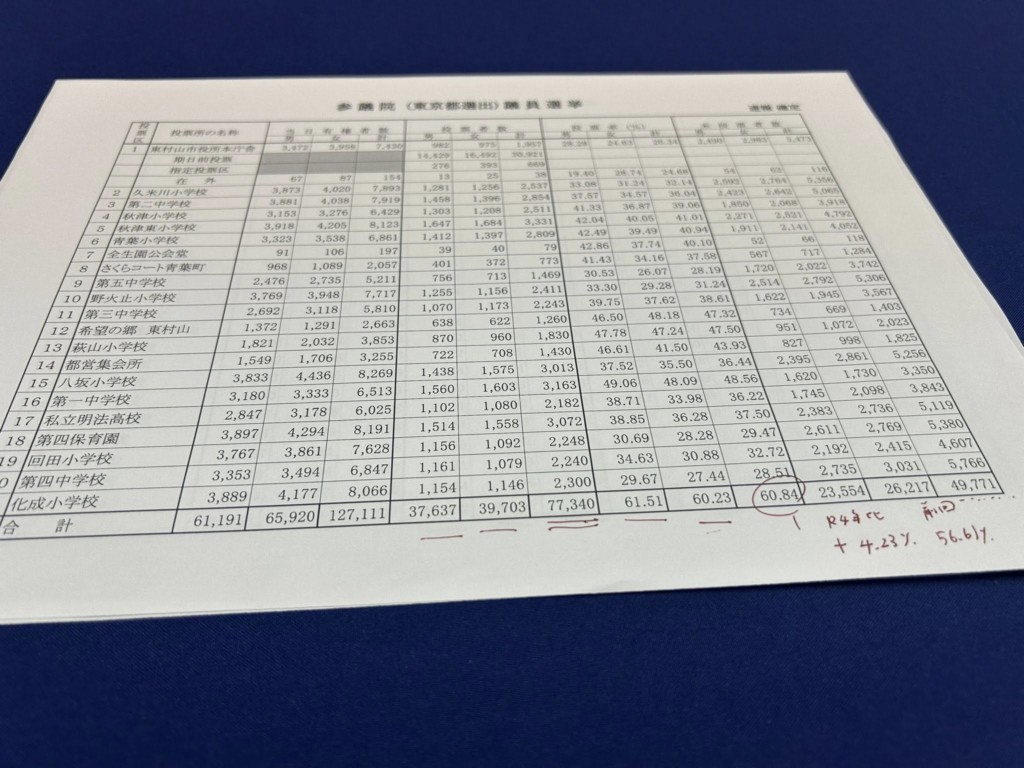 参議院(東京都選出)議員選挙
選挙 確定
投票区 投票所の名称 当日有権者数 投票者数 投票率(%) 未投票者数
男 女 計 男 女 計 男 女 計 男 女 計
1 東村山市役所本庁舎 3,472 3,958 7,430 982 975 1,957 28.28 24.63 26.34 2,490 2,983 5,473
期日前投票 14,429 16,492 30,921
指定投票区 276 393 669
在外 67 87 154 13 25 38 19.40 28.74 24.68 54 62 116
2 久米川小学校 3,873 4,020 7,893 1,281 1,256 2,537 33.08 31.24 32.14 2,592 2,764 5,356
3 第二中学校 3,881 4,038 7,919 1,458 1,396 2,854 37.57 34.57 36.04 2,423 2,642 5,065
4 秋津小学校 3,153 3,276 6,429 1,303 1,208 2,511 41.33 36.87 39.06 1,850 2,068 3,918
5 秋津東小学校 3,918 4,205 8,123 1,647 1,684 3,331 42.04 40.05 41.01 2,271 2,521 4,792
6 青葉小学校 3,323 3,538 6,861 1,412 1,397 2,809 42.49 39.49 40.94 1,911 2,141 4,052
7 全生園公会堂 91 106 197 39 40 79 42.86 37.74 40.10 52 66 118
8 さくらコート青葉町 968 1,089 2,057 401 372 773 41.43 34.16 37.58 567 717 1,284
9 第五中学校 2,476 2,735 5,211 756 713 1,469 30.53 26.07 28.19 1,720 2,022 3,742
10 野火止小学校 3,769 3,948 7,717 1,255 1,156 2,411 33.30 29.28 31.24 2,514 2,792 5,306
11 第三中学校 2,692 3,118 5,810 1,070 1,173 2,243 39.75 37.62 38.61 1,622 1,945 3,567
12 希望の郷 東村山 1,372 1,291 2,663 638 622 1,260 46.50 48.18 47.32 734 669 1,403
13 萩山小学校 1,821 2,032 3,853 870 960 1,830 47.78 47.24 47.50 951 1,072 2,023
14 都営集会所 1,549 1,706 3,255 722 708 1,430 46.61 41.50 43.93 827 998 1,825
15 八坂小学校 3,833 4,436 8,269 1,438 1,575 3,013 37.52 35.50 36.44 2,395 2,861 5,256
16 第一中学校 3,180 3,333 6,513 1,560 1,603 3,163 49.06 48.09 48.56 1,620 1,730 3,350
17 私立明法高校 2,847 3,178 6,025 1,102 1,080 2,182 38.71 33.98 36.22 1,745 2,098 3,843
18 第四保育園 3,897 4,294 8,191 1,514 1,558 3,072 38.85 36.28 37.50 2,383 2,736 5,119
19 回田小学校 3,767 3,861 7,628 1,156 1,092 2,248 30.69 28.28 29.47 2,611 2,769 5,380
0 第四中学校 3,353 3,494 6,847 1,161 1,079 2,240 34.63 30.88 32.72 2,192 2,415 4,607
化成小学校 3,889 4,177 8,066 1,154 1,146 2,300 29.67 27.44 28.51 2,735 3,031 5,766
合計 61,191 65,920 127,111 37,637 39,703 77,340 61.51 60.23 60.84 23,554 26,217 49,771
R4年比 前回
+4.23% 56.61%